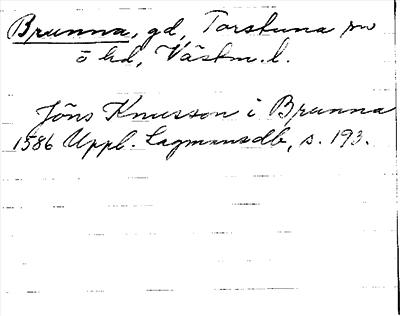 Brunna, gd, Torstuna sn
ö hd, Västm. l.
Jöns Knusson i Brunna
1586 Uppl. Lagmansdb, s. 193.